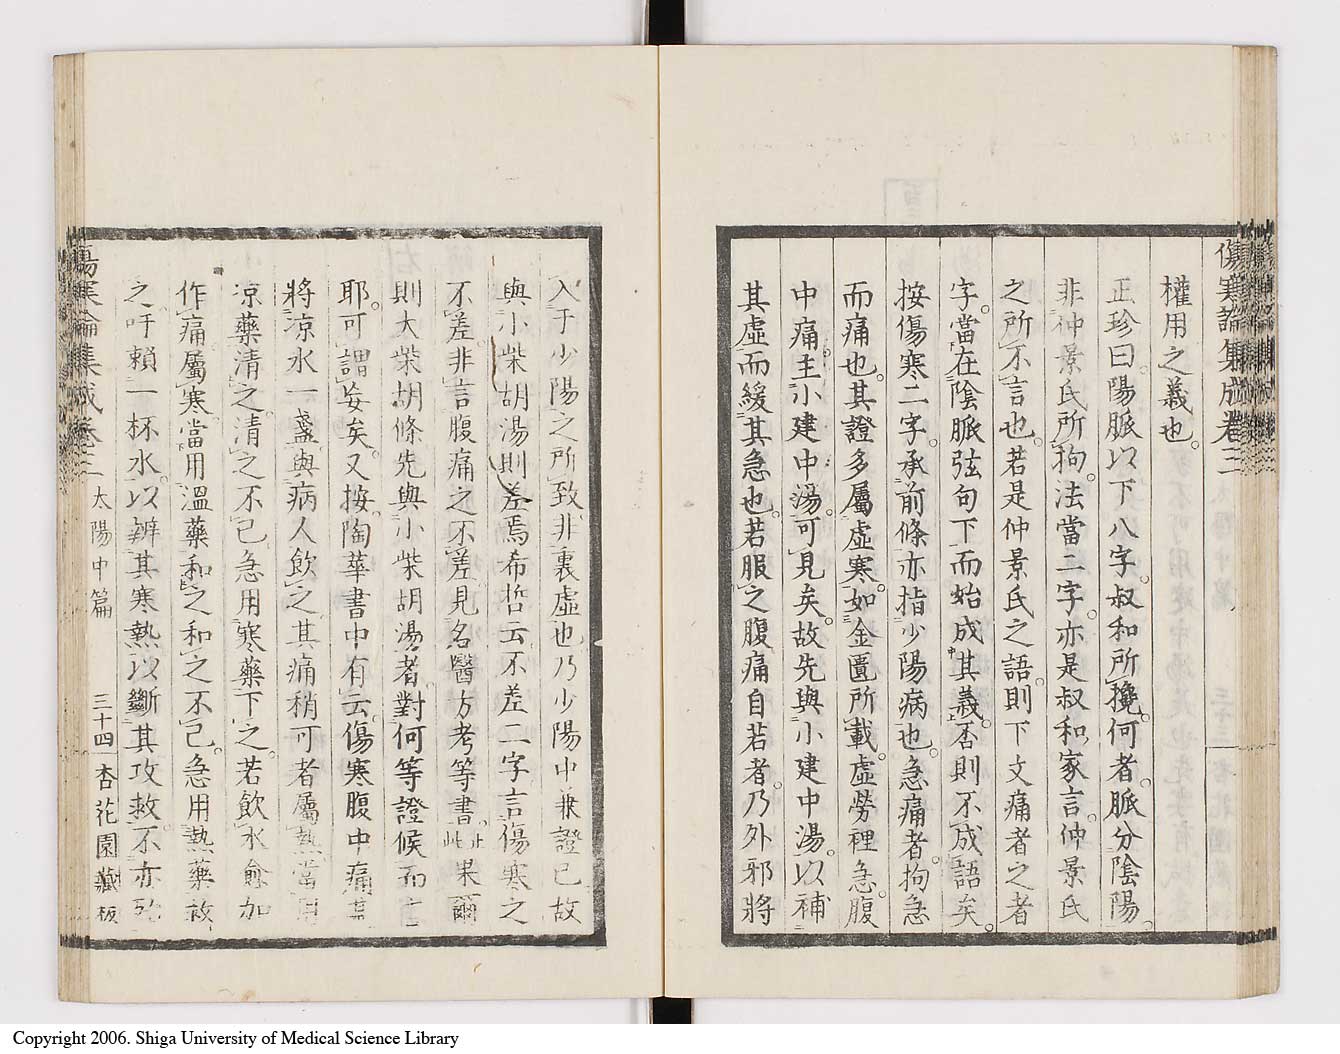 傷寒論集成卷三
權用之義也。
正珍曰。陽脈以下八字。叔和所攙。何者。脈分陰陽。
非仲景氏所拘。法當二字。亦是叔和家言。仲景氏
之所不言也。若是仲景氏之語。則下文痛者之者
字。當在陰脈弦句下而始成其義。否則不成語矣。
按傷寒二字。承前條亦指少陽病也。急痛者。拘急
而痛也。其證多屬虛寒。如金匱所載。虛勞裡急。腹
中痛。主小建中湯。可見矣。故先與小建中湯。以補
其虛而緩其急也。若服之腹痛自若者。乃外邪將
入于少陽之所致非裏虛也乃少陽中兼證已故
與小柴胡湯則差焉希哲云不差二字言傷寒之
不差。非言腹痛之不差見名醫方考等書。果爾
則大柴胡條先與小柴胡湯者。對何等證候而
耶。可謂妄矣。又按。陶華書中有云。傷寒腹中痛
將涼水一盞與病人飲之其痛稍可者屬熱當用
涼藥清之。清之不已急用寒藥下之。若飲水愈加
作痛屬寒。當用溫藥和之和之不已。急用熱藥救
之吁賴一杯水。以辨其寒熱以斷其攻救。不亦
傷寒論集成卷三 太陽中篇 三十四 杏花園藏板
Copyright 2006. Shiga University of Medical Science Library